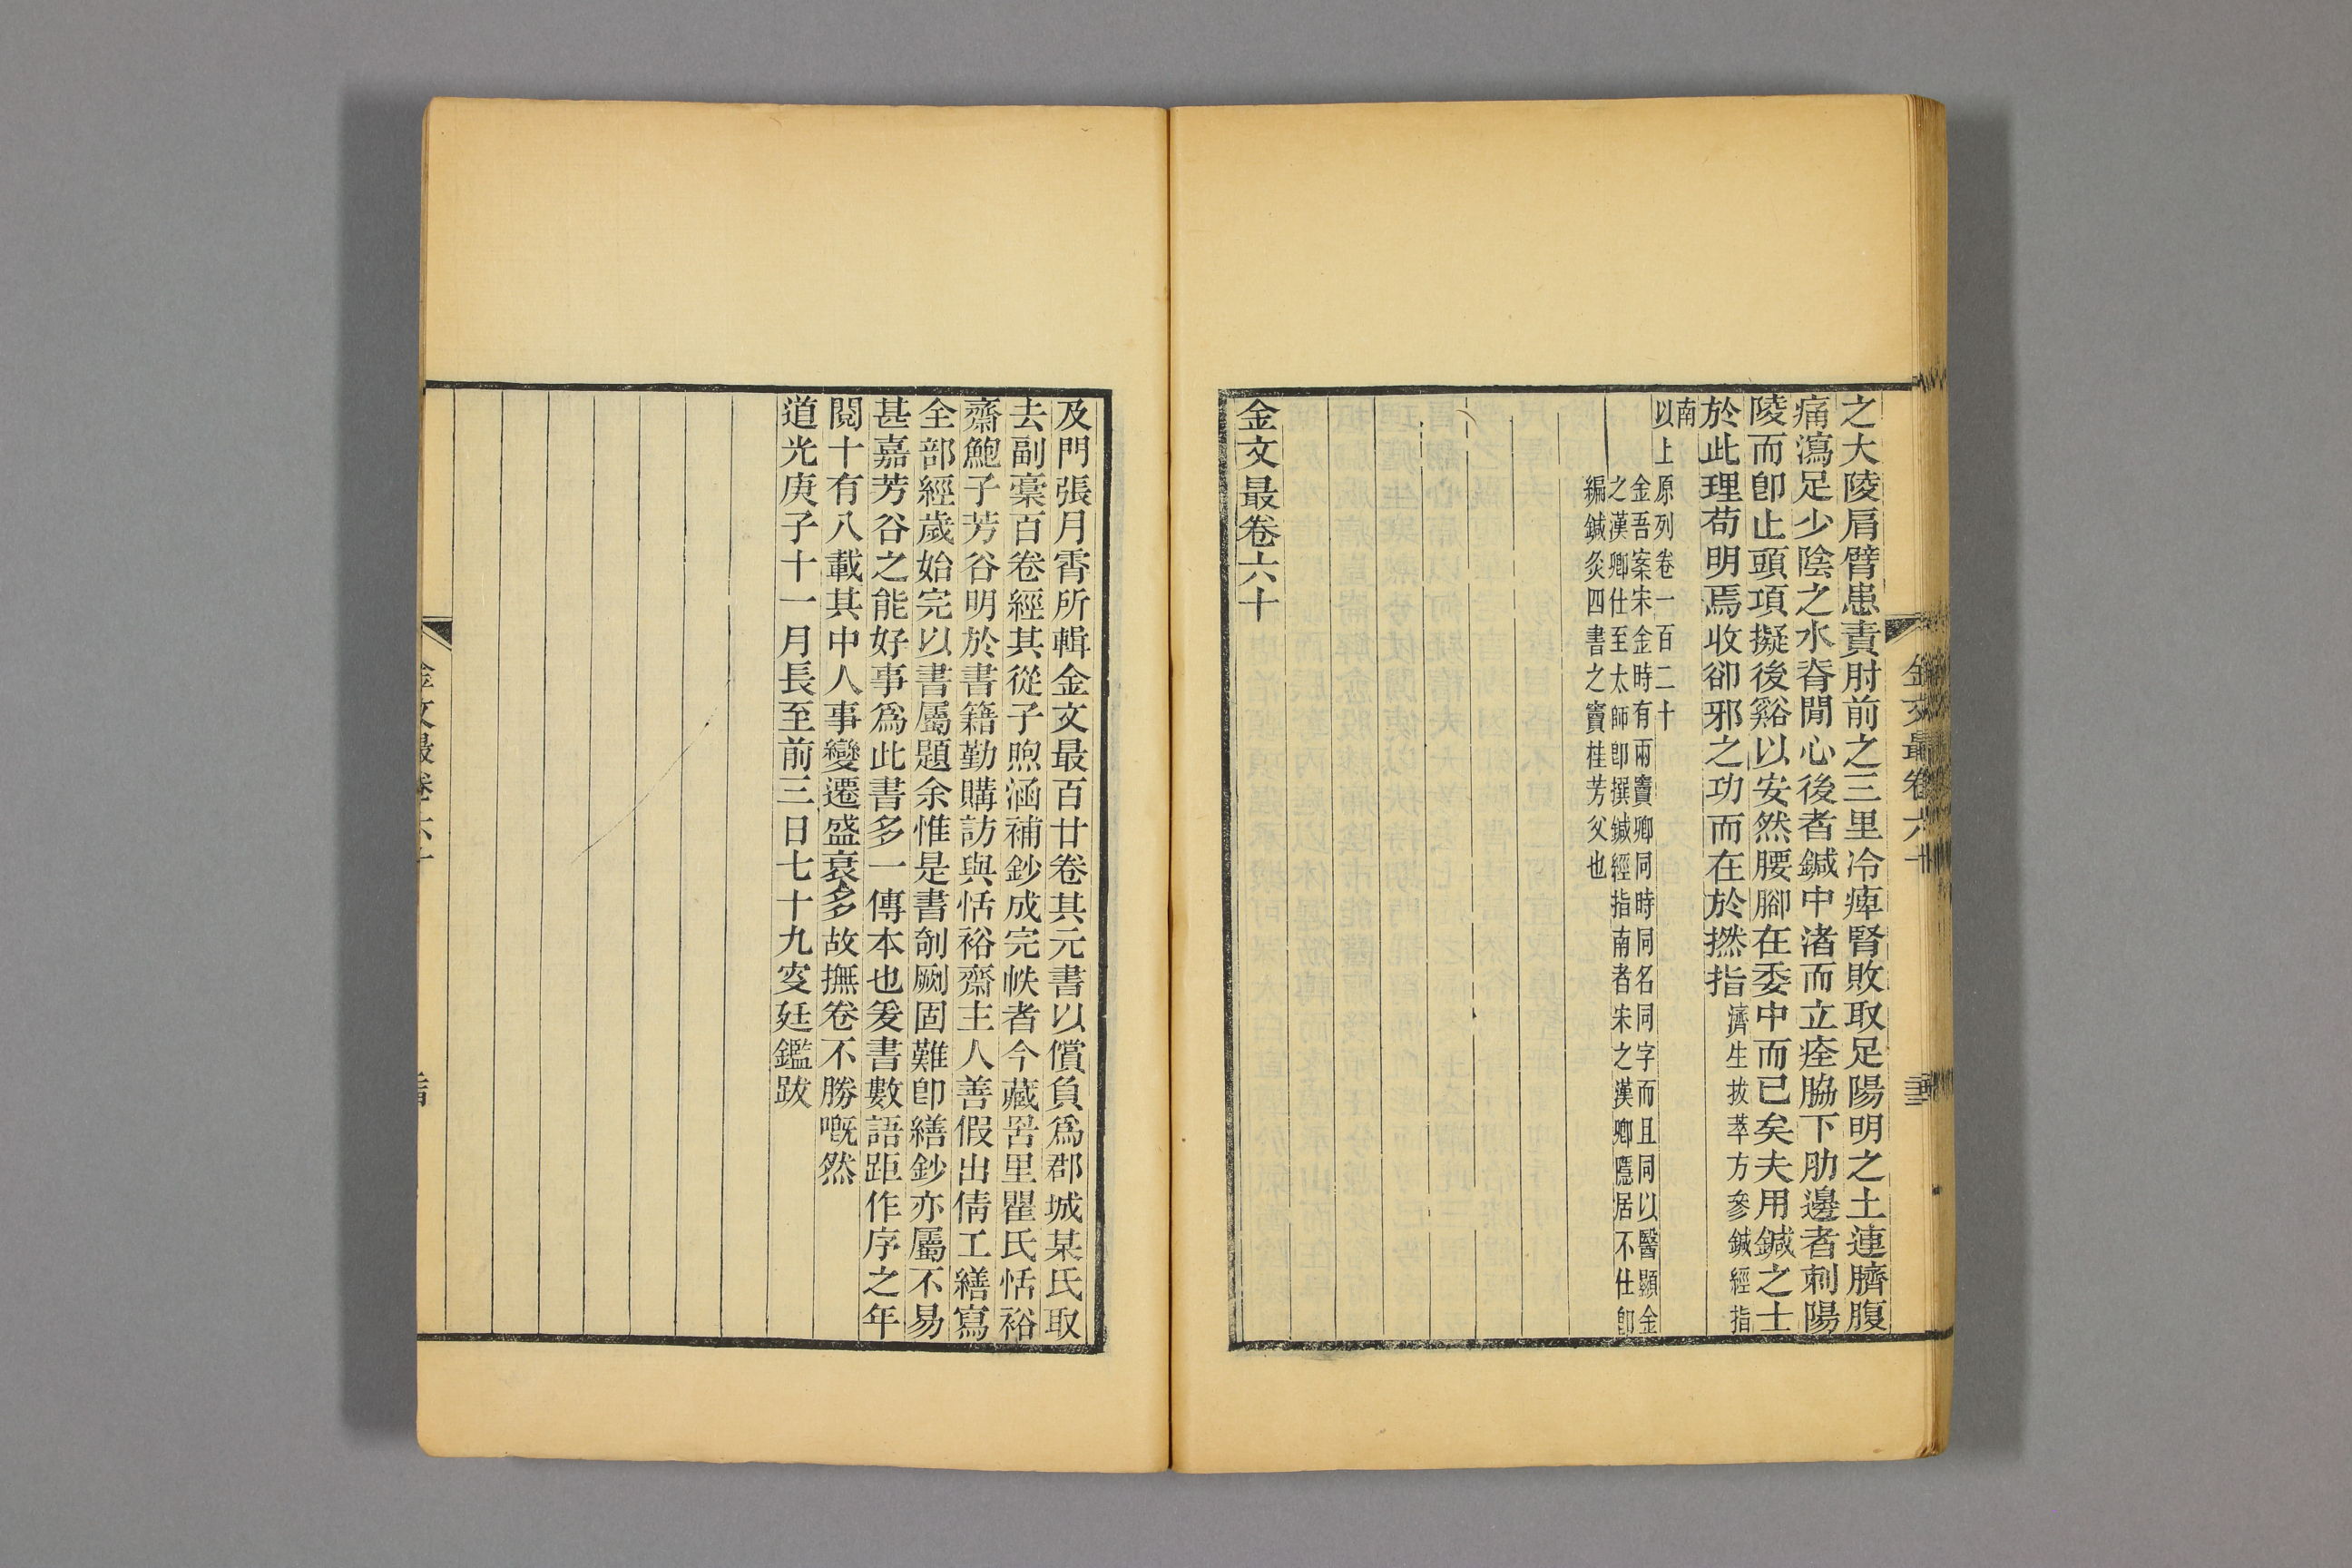 金文最卷六十
之大陵肩臂患責肘前之三里冷痺腎敗取足陽明之土連臍腹
痛瀉足少陰之水脊閒心後者鍼中渚而立痊脇下肋邊者刺陽
陵而卽止頭項擬後谿以安然腰腳在委中而已矣夫用鍼之士
於此理苟明焉收卻邪之功而在於撚指濟生拔萃方參鍼經指
南
以上原列卷一百二十
金吾案宋金時有兩竇卿同時同名同字而且同以醫顯金
之漢卿仕至太師卽撰鍼經指南者宋之漢卿隱居不仕卽
編鍼灸四書之竇桂芳父也
金文最卷六十
及門張月霄所輯金文最百廿卷其元書以償負爲郡城某氏取
去副稾百卷經其從子煦涵補鈔成完帙者今藏罟里瞿氏恬裕
齋鮑子芳谷明於書籍勤購訪與恬裕齋主人善假出倩工繕寫
全部經歲始完以書屬題余惟是書剞劂固難卽繕鈔亦屬不易
甚嘉芳谷之能好事爲此書多一傳本也爰書數語距作序之年
閱十有八載其中人事變遷盛衰多故撫卷不勝嘅然
道光庚子十一月長至前三日七十九叟廷鑑跋
金文最卷六十